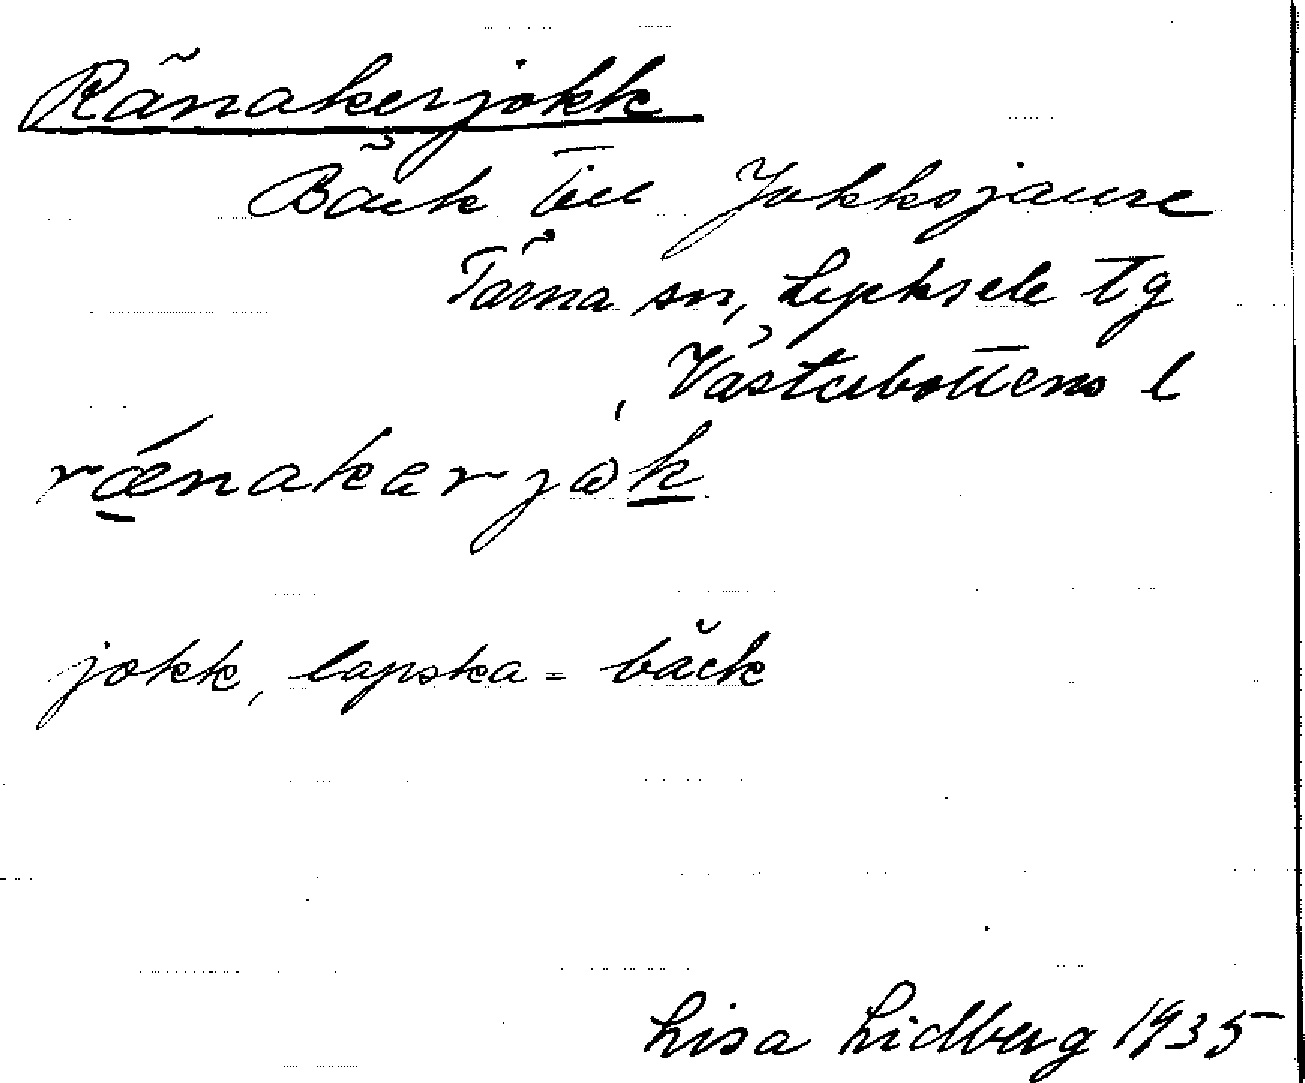 Ränakerjokk
Bäck till Jokksjaure
Tärna sn, Lycksele tg
Västerbottens l
rænakerjok
jokk, lapska = bäck
Lisa Lidberg 1935